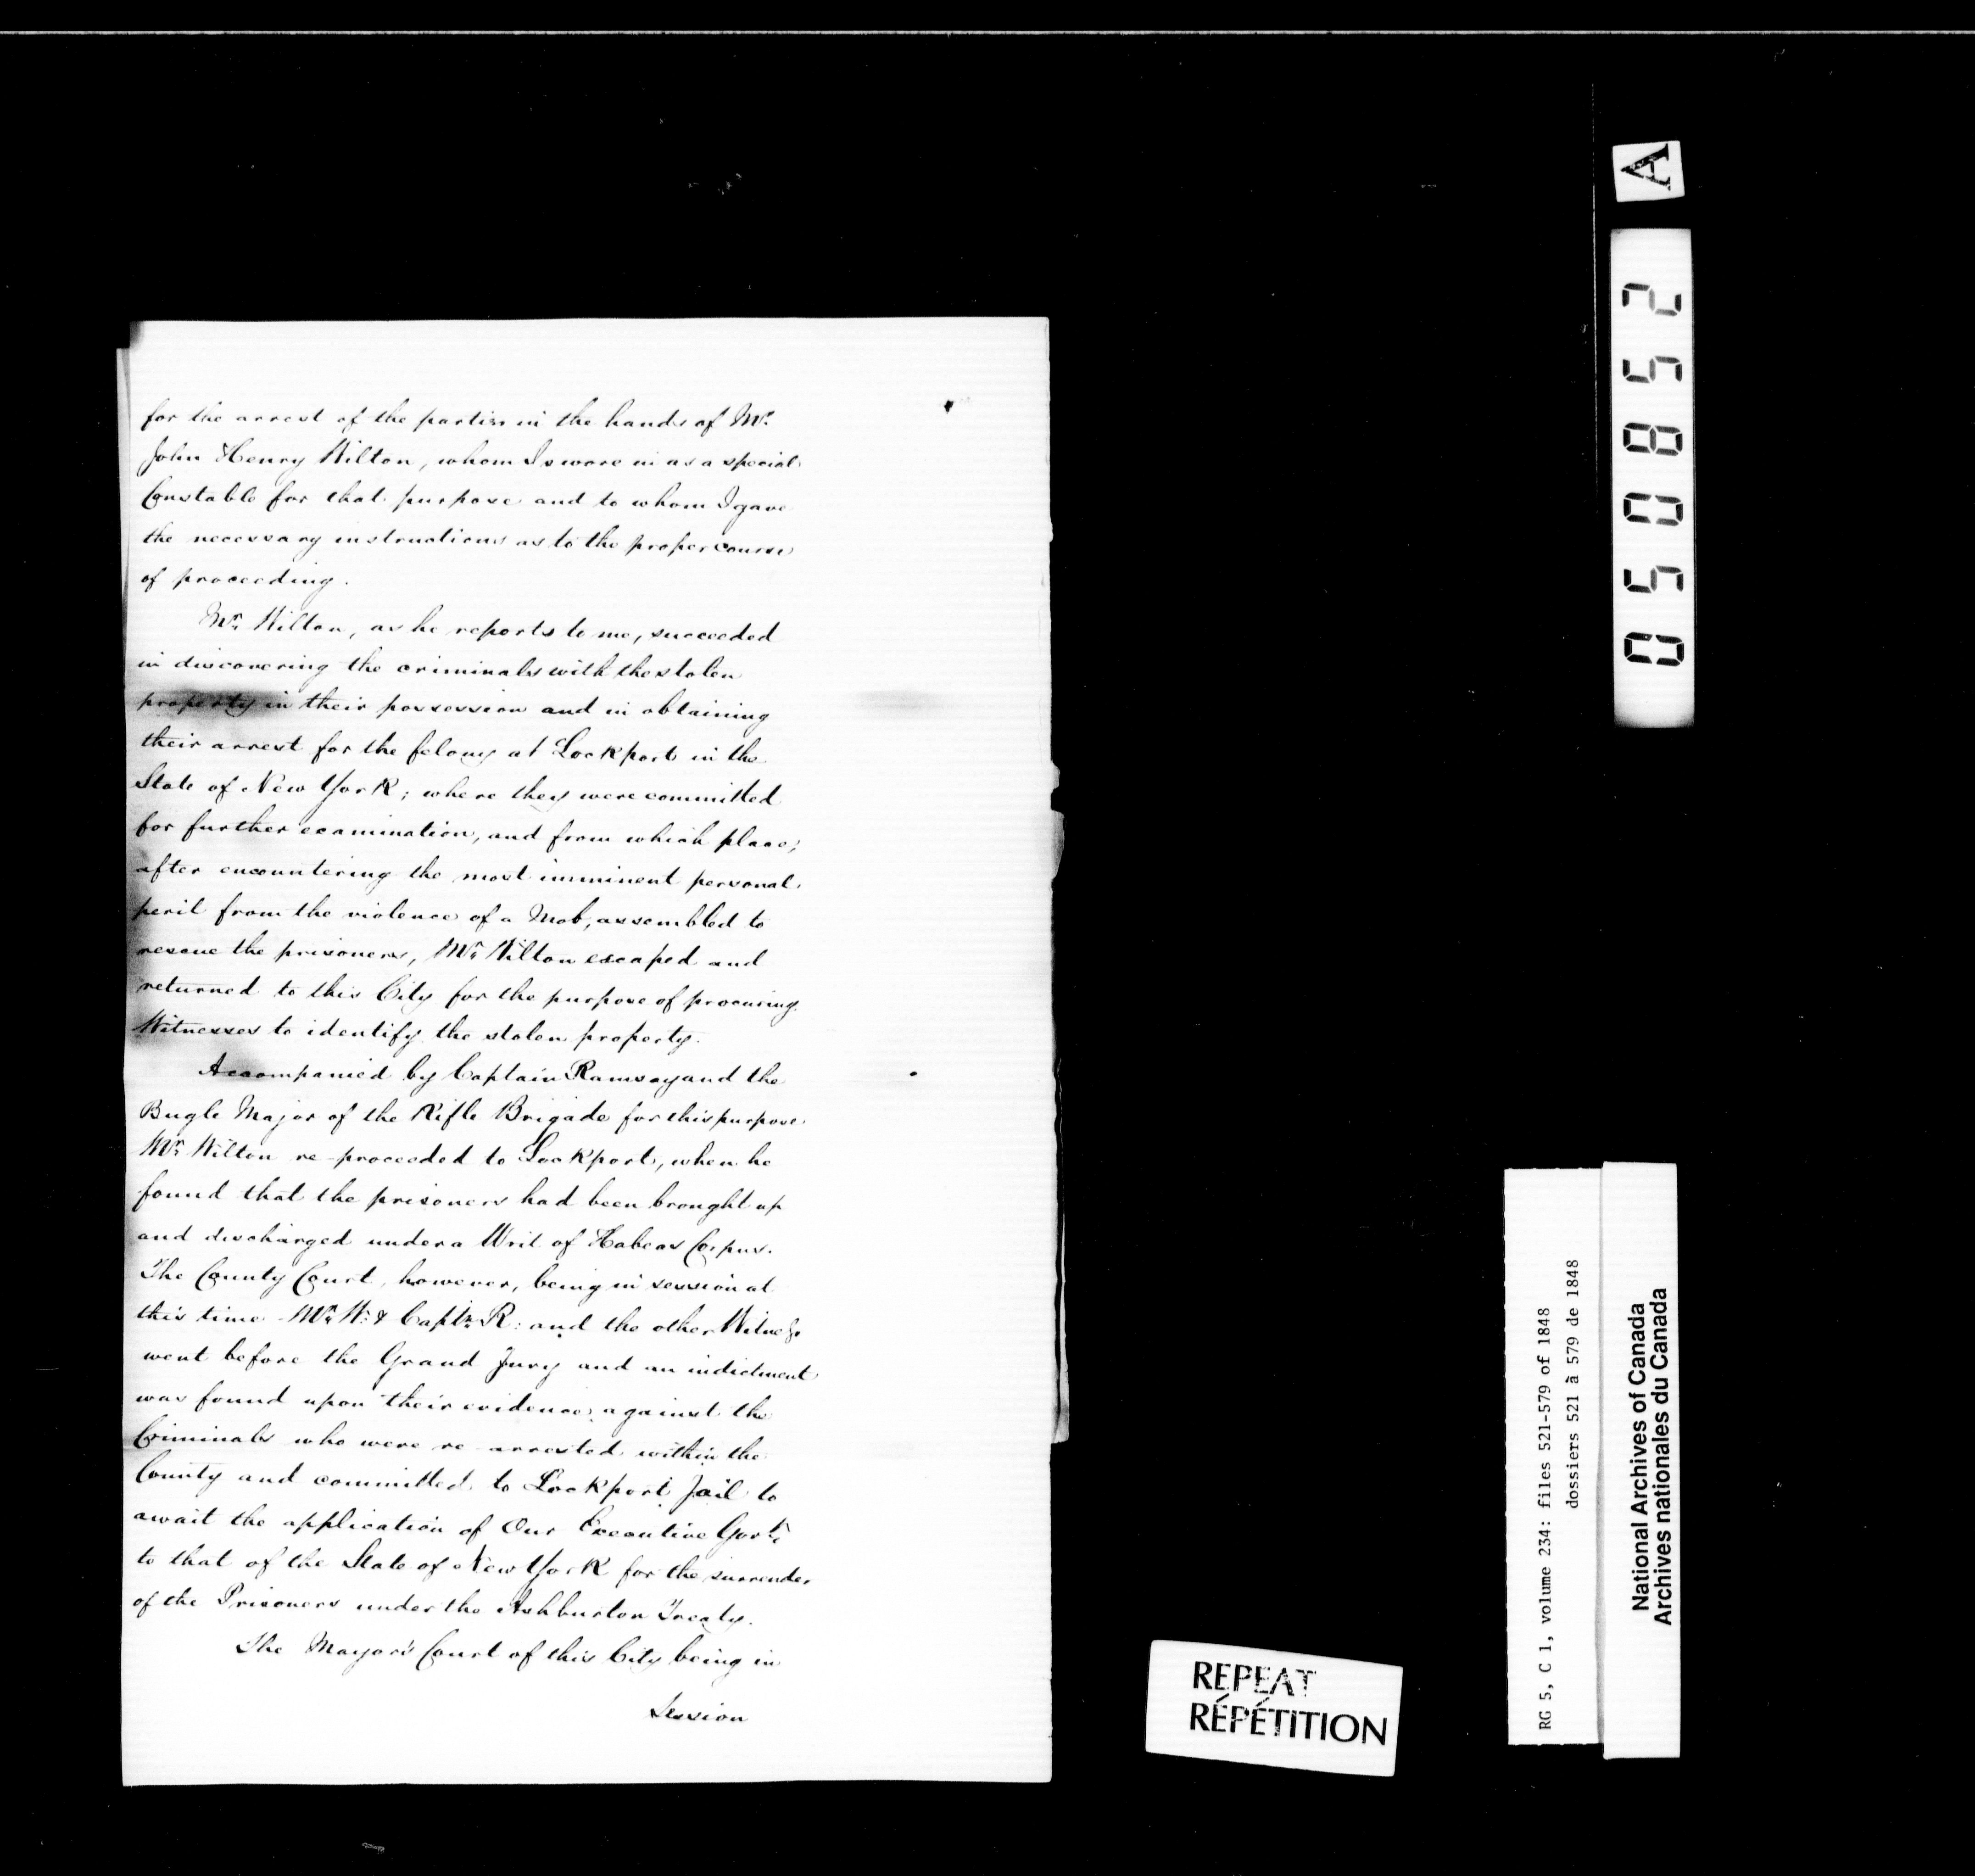 for the arrest of the parties in the hands of Mr.
John Henry Wilton, whom I swore in as a special
Constable for that purpose and to whom I gave
the necessary instructions as to the proper course
of proceeding.
Mr. Wilton, as he reports to me, succeeded
in discovering the criminals with the stolen
property in their possession and in obtaining
their arrest for the felony at Lockport in the
State of New York; where they were committed
for further examination, and from which place,
after encountering the most imminent personal
peril from the violence of a Mob, assembled to
rescue the prisoners, Mr. Wilton escaped and
returned to this City for the purpose of procuring
Witnesses to identify the stolen property.
Accompanied by Captain Ramsay and the
Bugle Major of the Rifle Brigade for this purpose
Mr. Wilton re-proceeded to Lockport, when he
found that the prisoners had been brought up
and discharged under a Writ of Habeas Corpus.
The County Court, however, being in session at
this time Mr. W: & Captn. R: and the other Witness
went before the Grand Jury and an indictment
was found upon their evidence against the
Criminals who were re-arrested within the
County and committed to Lockport Jail to
await the application of Our Executive Govt.
to that of the State of New York for the surrender
of the Prisoners under the Ashburton Treaty.
The Mayor's Court of this City being in
Session
A
050852
RG 5, C 1, volume 234: files 521-579 of 1848
dossiers 521 à 579 de 1848
National Archives of Canada
Archives nationales du Canada
REPEAT
RÉPÉTITION